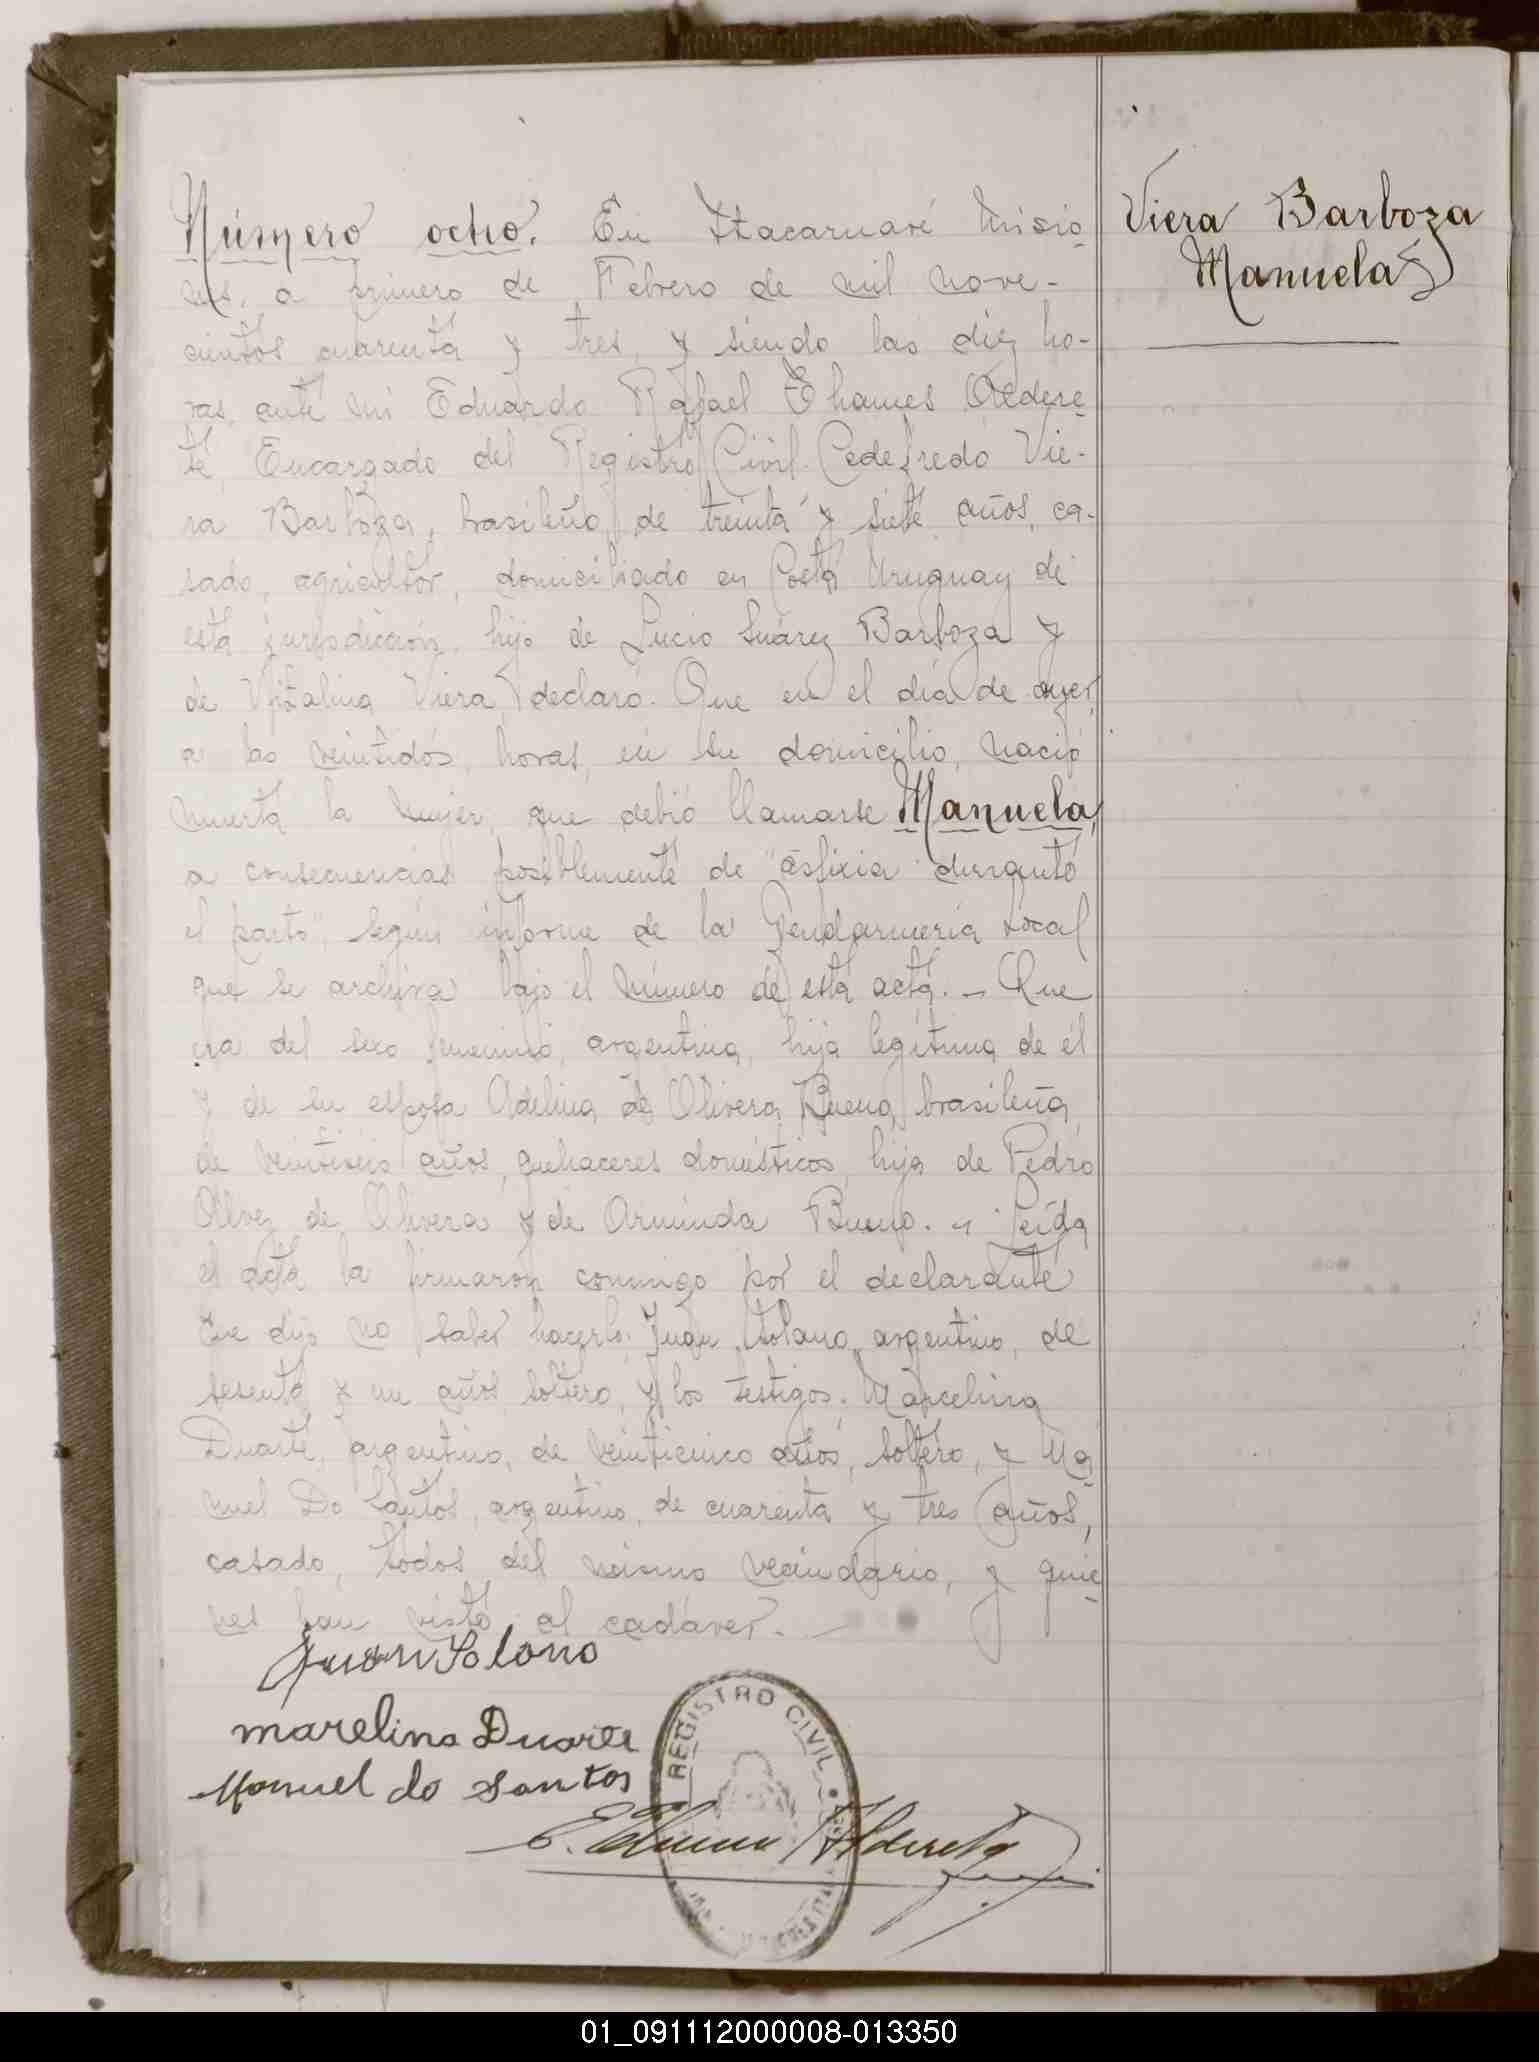 Número ocho. En Itacaruaré Misio-
nes, a primero de Febrero de mil nove-
cientos cuarenta y tres, y siendo las diez ho-
ras, ante mi Eduardo Rafael Ehames Aldere-
te, Encargado del Registro Civil. Cedefredo Vie-
ra Barboza, brasileño, de treinta y siete años, ca-
sado, agricultor, domiciliado en Costa Uruguay de
esta jurisdicción, hijo de Lucio Suárez Barboza y
de Vitalina Viera, declaró. Que en el día de ayer,
a las veintidós horas, en su domicilio, nació
muerta la mujer, que debió llamarse Manuela,
a consecuencias posiblemente de "asfixia durante
el parto", según informe de la Gendarmería Local
que se archiva bajo el número de esta acta. - Que
era del sexo femenino, argentina, hija legítima de él
y de su esposa Adelina de Olivera Bueno, brasileña,
de años, quehaceres domésticos, hija de Pedro
Alvez de Olivera y de Arminda Bueno. - Leída
el acta la firmaron conmigo por el declarante
que dijo no saber hacerlo; Juan Solano, argentino, de
sesenta y un años, soltero, y los testigos. Marcelino
Duarte, argentino, de veinticinco años, soltero, y Ma-
nuel Do Santos, argentino, de cuarenta y tres años,
casado, todos del mismo vecindario, y quie-
nes han visto al cadáver. -
Juan Solano
Marelino Duarte
Manuel do Santos
E. Ehames Alderete
REGISTRO CIVIL
Viera Barboza
Manuela
01_091112000008-013350